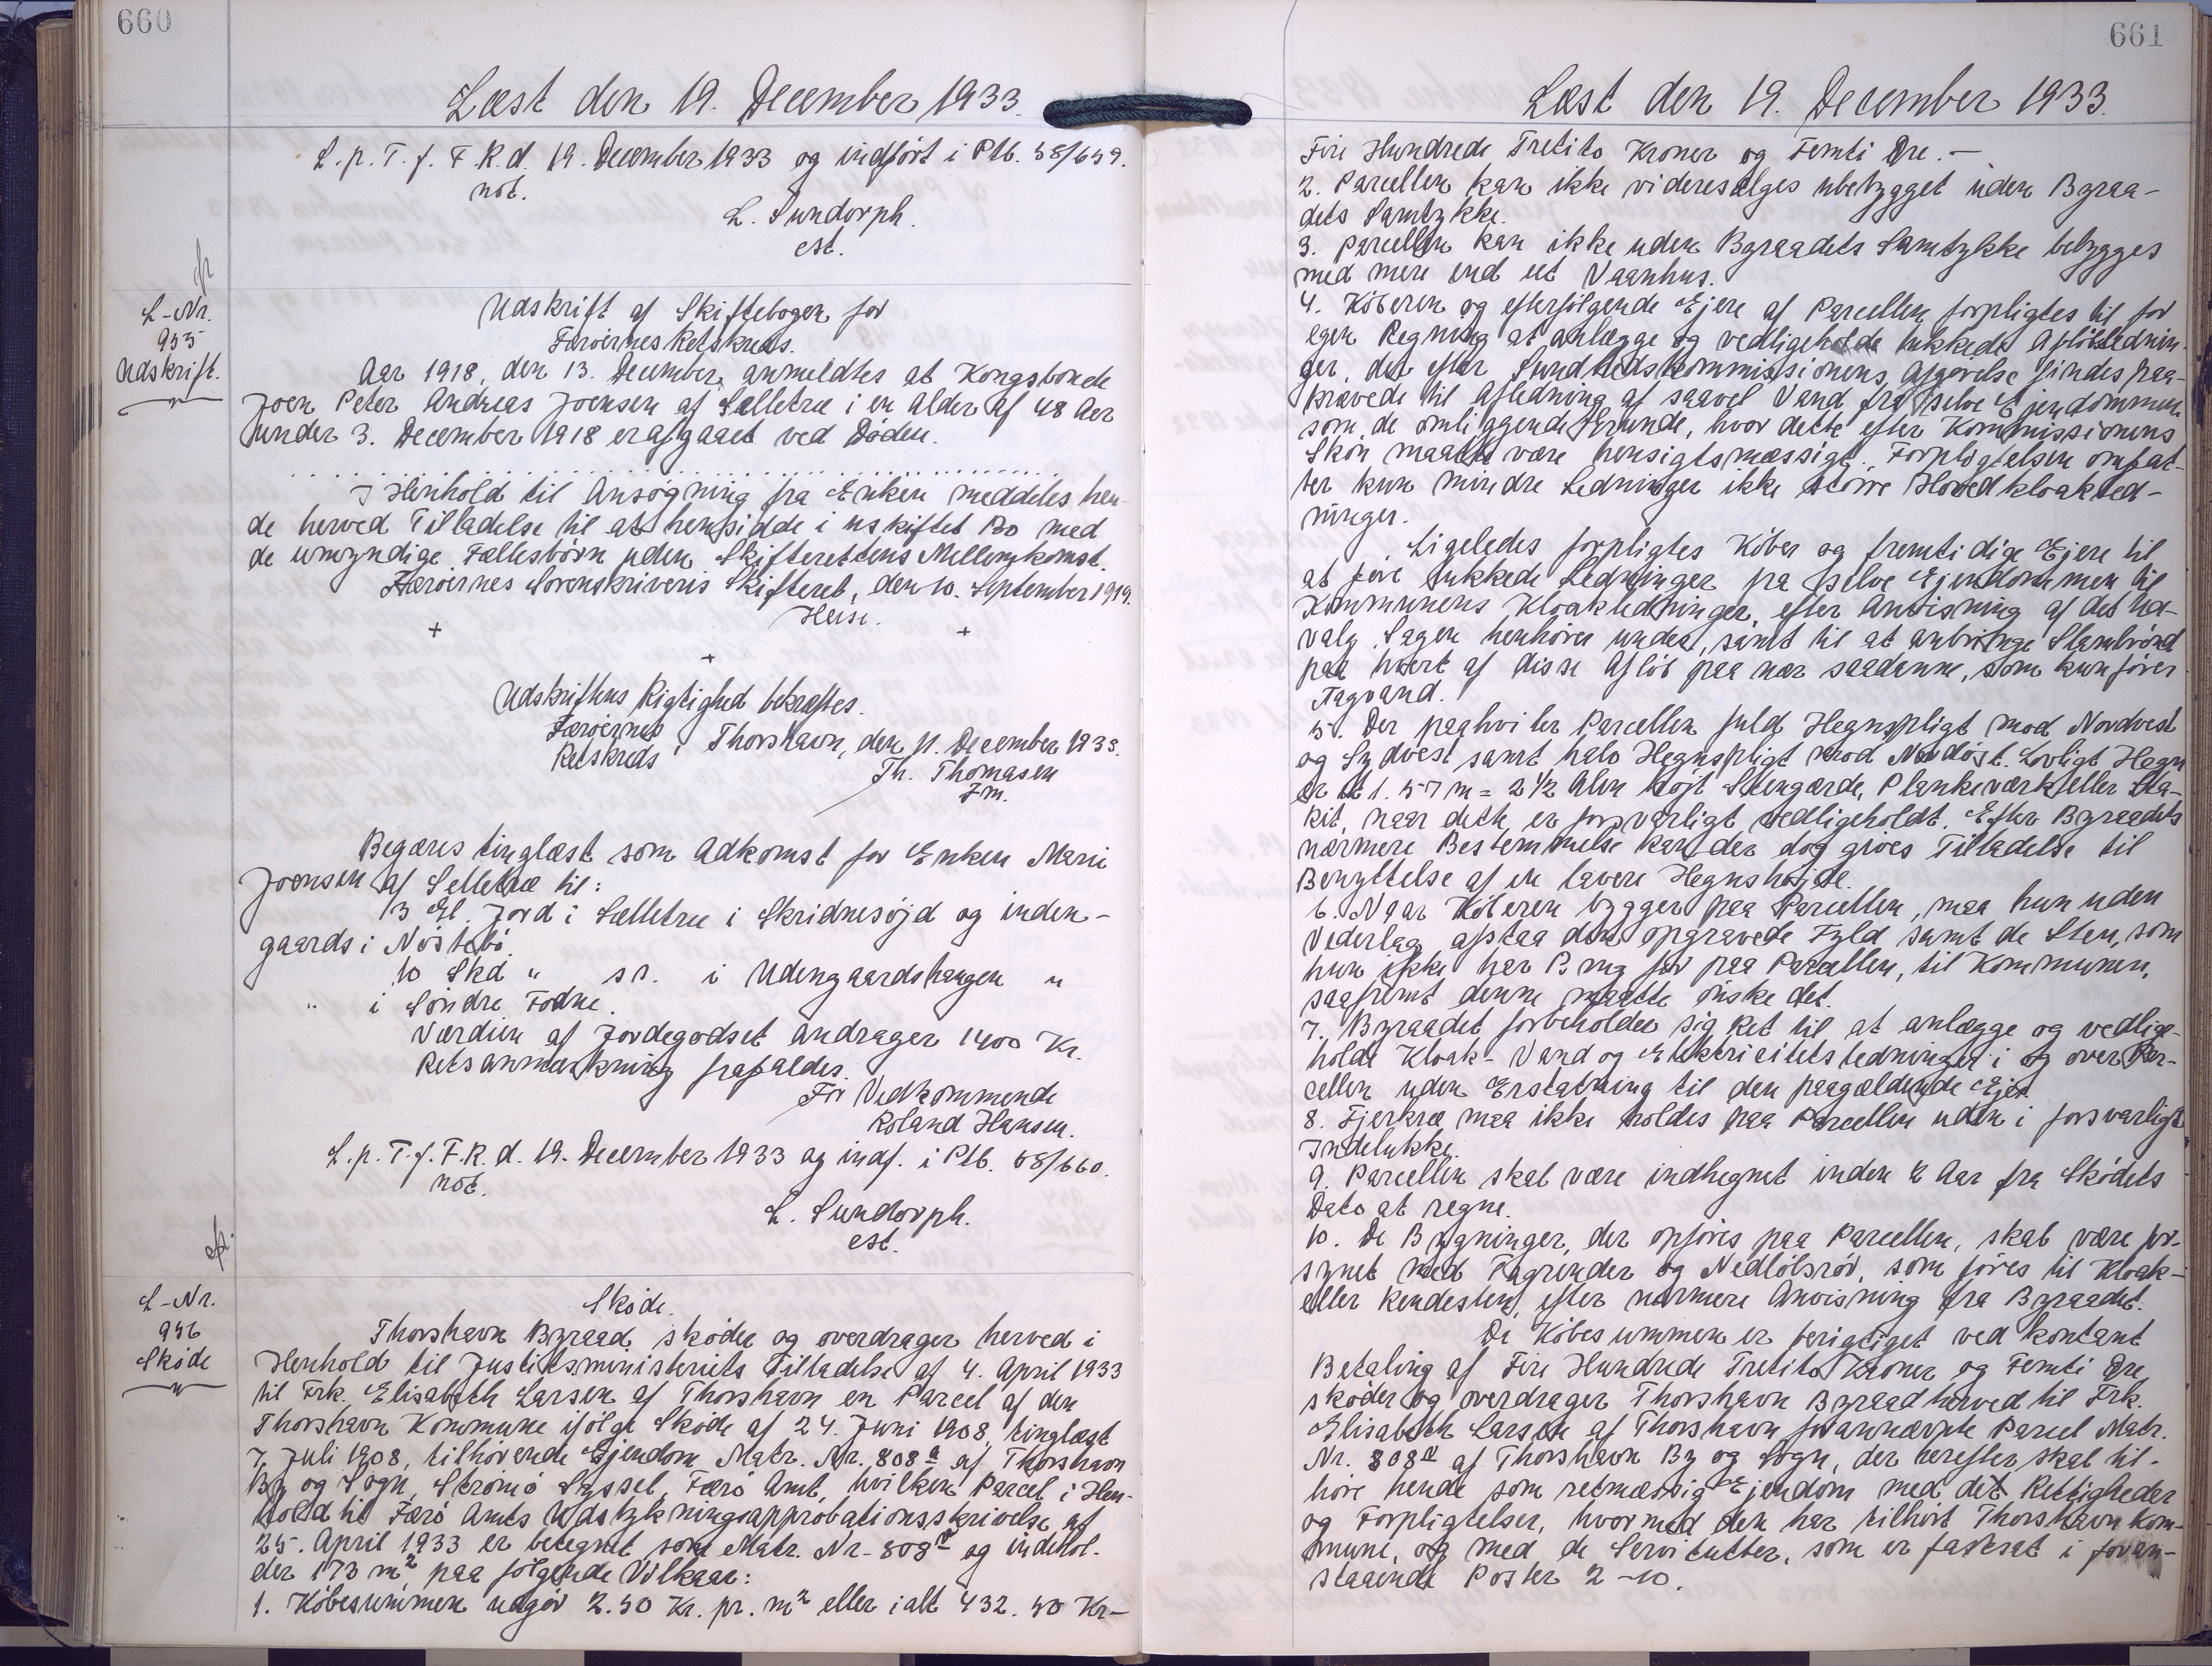 660
Læst den 19. December 1933.
L. p. T. f. F. R. d. 19. December 1933 og indført i Ptb. 58/659.
not.
L. Sundorph.
cst.
L-Nr.
955
Udskrift.
Udskrift af Skiftebogen for
Færøernes Retskreds.
Aar 1918, den 13. December, anmeldtes at Kongsbonde
Joen Peter Andreas Joensen af Selletræ i en Alder af 48 Aar
under 3. December 1918 er afgaaet ved Døden.
I Henhold til Ansøgning fra Enken meddeles hen-
de herved Tilladelse til at hensidde i uskiftet Bo med
de umyndige Fællesbørn uden Skifterettens Mellemkomst.
Færøernes Sorenskriveris Skifteret, den 10. September 1919.
Heise.
+ +
+
Udskriftens Rigtighed bekræftes.
Færøernes
Retskreds
Thorshavn, den 11. December 1933.
Th. Thomasen
Fm.
Begæres tinglæst som Adkomst for Enken Marie
Joensen af Selletræ til:
13 Gl. Jord i Selletræ i Skridnesøjd og inden-
gaards i Nøstebø.
10 Skd " sn. i Udengaardshaugen "
" i Søndre Fodne.
Værdien af Jordegodset andrager 1400 Kr.
Retsanmærkning frafaldes.
For Vedkommende
Roland Hansen.
L. p. T. f. F. R. d. 19. December 1933 og indf. i Ptb. 58/660.
not.
L. Sundorph.
cst.
L-Nr.
956
Skøde
Skøde.
Thorshavn Byraad skøder og overdrager herved i
Henhold til Justitsministeriets Tilladelse af 4. April 1933
til Frk. Elisabeth Larsen af Thorshavn en Parcel af den
Thorshavn Kommune ifølge Skøde af 24. Juni 1908, tinglæst
7. Juli 1908, tilhørende Ejendom Matr. Nr. 808 a af Thorshavn
By og Sogn, Strømø Syssel, Færø Amt, hvilken Parcel i Hen-
hold til Færø Amts Udstykningsapprobationsskrivelse af
25. April 1933 er betegnet som Matr. Nr. 808 og indehol-
der 173 m² paa følgende Vilkaar:
1. Købesummen udgør 2.50 Kr. pr. m² eller ialt 432.50 Kr-
661
Læst den 19. December 1933.
Fire Hundrede Tretito Kroner og Femti Øre.-
2. Parcellen kan ikke videresælges ubebygget uden Byraa-
dets Samtykke.
3. Parcellen kan ikke uden Byraadets Samtykke bebygges
med mere end eet Vaanhus.
4. Køberen og efterfølgende Ejere af Parcellen forpligtes til for
egen Regning at anlægge og vedligeholde lukkede Afløbsednin-
ger, det efter Sundhedskommissionens Afgørelse findes paa-
krævede til Afledning af saavel Vand fra selve Ejendommen
som de omliggende Grunde, hvor dette efter Kommissionens
Skøn maatte være hensigtsmæssigt. Forpligtelsen omfat-
ter kun mindre Ledninger ikke større Hovedkloakled-
ninger.
Ligeledes forpligtes Køber og fremtidige Ejere til
at føre lukkede Ledninger fra selve Ejendommen til
Kommunens Kloakledninger, efter Anvisning af det Ud-
valg Sagen henhører under, samt til at anbringe Slambrønd
paa hvert af disse Afløb paa nær saadanne, som kun fører
Tagvand.
5. Der paahviler Parcellen fuld Hegnspligt mod Nordvest
og Sydvest samt halv Hegnspligt mod Nordøst. Lovligt Hegn
er et 1.57 m = 2½ Alen højt Stengærde, Plankeværk eller Sta-
kit, naar dette er forsvarligt vedligeholdt. Efter Byraadets
nærmere Bestemmelse kan der dog gives Tilladelse til
Benyttelse af en lavere Hegnshøjde.
6. Naar Køberen bygger paa Parcellen, maa hun uden
Vederlag afstaa den opgravede Fyld samt de Sten, som
hun ikke har Brug for paa Parcellen, til Kommunen,
saafremt denne maatte ønske det.
7. Byraadet forbeholder sig Ret til at anlægge og vedlige-
holde Kloak- Vand og Elektricitetsledninger i og over Par-
cellen uden Erstatning til den paagældende Ejer.
8. Fjerkræ maa ikke holdes paa Parcellen uden i forsvarligt
Indelukke.
9. Parcellen skal være indhegnet inden 2 Aar fra Skødets
Dato at regne.
10. De Bygninger, der opføres paa Parcellen, skal være for-
synet med Tagrender og Nedløbsrør, som føres til Kloak-
eller Rendesten, efter nærmere Anvisning fra Byraadet.
Da Købesummen er berigtiget ved kontant
Betaling af Fire Hundrede Tretito Kroner og Femti Øre
skøder og overdrager Thorshavn Byraad herved til Frk.
Elisabeth Larsen af Thorshavn forannævnte Parcel Matr.
Nr. 808 af Thorshavn By og Sogn, der herefter skal til-
høre hende som retmæssig Ejendom med det Rettigheder
og Forpligtelser, hvormed den har tilhørt Thorshavn Kom-
mune, og med de Servitutter, som er fastsat i foran-
staaende Poster 2-10.